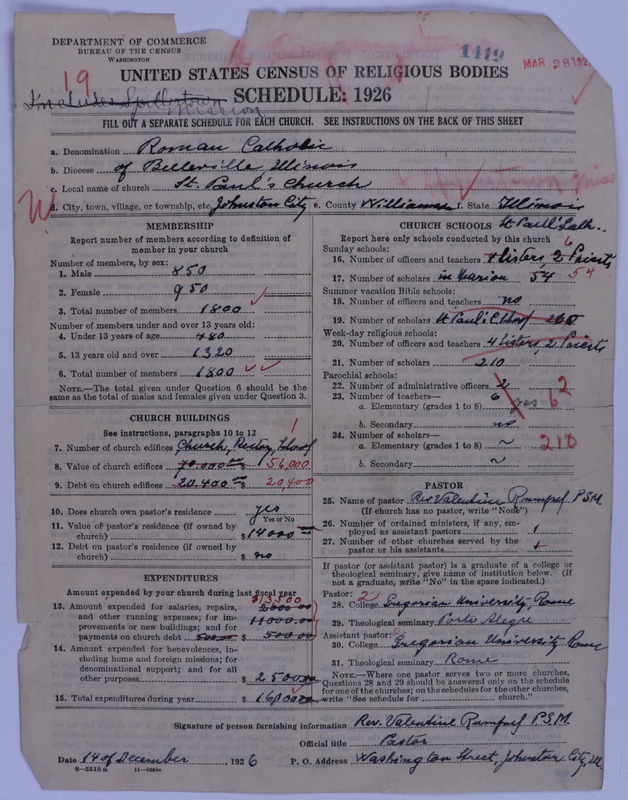 DEPARTMENT OF COMMERCE
BUREAU OF THE CENSUS
WASHINGTON
1419
MAR 28 192
19
UNITED STATES CENSUS OF RELIGIOUS BODIES
Includes Spillertown
mission
SCHEDULE: 1926
FILL OUT A SEPARATE SCHEDULE FOR EACH CHURCH. SEE INSTRUCTIONS ON THE BACK OF THIS SHEET
a. Denomination Roman Catholic
b. Diocese of Belleville, Illinois
c. Local name of church St. Paul's Church
d. City, town, village, or township, etc. Johnston City e. County Williamson f. State Illinois
MEMBERSHIP
Report number of members according to definition of
member in your church
Number of members, by sex:
1. Male 850
2. Female 950
3. Total number of members 1800
Number of members under and over 13 years old:
4. Under 13 years of age 480
5. 13 years old and over 1320
6. Total number of members 1800
NOTE.—The total given under Question 6 should be the
same as the total of males and females given under Question 3.
CHURCH BUILDINGS
See instructions, paragraphs 10 to 12
7. Number of church edifices Church, Rectory, School 1
8. Value of church edifices $ 70.000 56,000
9. Debt on church edifices $ 20.400 20,400
10. Does church own pastor's residence yes
Yes or No
11. Value of pastor's residence (if owned by
church) $ 14000
12. Debt on pastor's residence (if owned by
church) $ no
EXPENDITURES
Amount expended by your church during last fiscal year
13,500
13. Amount expended for salaries, repairs,
and other running expenses; for im-
provements or new buildings; and for 11000
payments on church debt 500 $ 500
14. Amount expended for benevolences, in-
cluding home and foreign missions; for
denominational support; and for all
other purposes $ 2500
15. Total expenditures during year $ 16000
CHURCH SCHOOLS St Paul's Cath.
Report here only schools conducted by this church
Sunday schools: 6
16. Number of officers and teachers 4 Sisters 2 Priests
17. Number of scholars in Marion 54 54
Summer vacation Bible schools:
18. Number of officers and teachers no
19. Number of scholars St Paul's C. School 210
Week-day religious schools:
20. Number of officers and teachers 4 Sisters, 2 Priests
21. Number of scholars 210
Parochial schools:
22. Number of administrative officers 2 2
23. Number of teachers— 6
a. Elementary (grades 1 to 8) yes 6
b. Secondary no
24. Number of scholars—
a. Elementary (grades 1 to 8) ~ 210
b. Secondary ~
PASTOR
25. Name of pastor Rev. Valentine Rumpf P.S.M.
(If church has no pastor, write "None")
26. Number of ordained ministers, if any, em-
ployed as assistant pastors 1
27. Number of other churches served by the
pastor or his assistants 1
If pastor (or assistant pastor) is a graduate of a college or
theological seminary, give name of institution below. (If
not a graduate, write "No" in the space indicated.)
Pastor: 2
28. College Gregorian University, Rome
29. Theological seminary Porto Alegre
Assistant pastor:
30. College Gregorian University Rome
31. Theological seminary Rome
NOTE.—Where one pastor serves two or more churches,
Questions 28 and 29 should be answered only on the schedule
for one of the churches; on the schedules for the other churches,
write "See schedule for church."
Signature of person furnishing information Rev. Valentine Rumpf P.S.M.
Official title Pastor
Date 14 of December, 1926 P. O. Address Washington Street, Johnston City, Ill.
8—5518 a 11—4664a